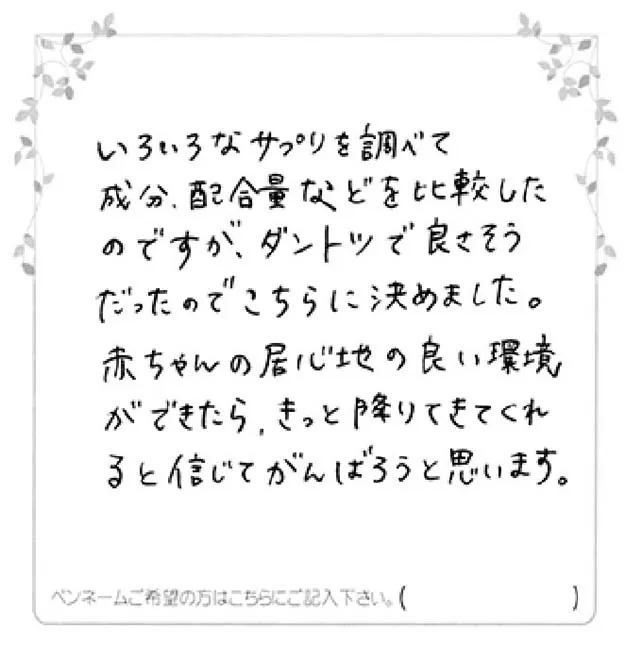 いろいろなサプリを調べて
成分、配合量などを比較した
のですが、ダントツで良さそう
だったのでこちらに決めました。
赤ちゃんの居心地の良い環境
ができたら、きっと降りてきてくれ
ると信じてがんばろうと思います。
ペンネームご希望の方はこちらにご記入下さい。(　　　　　　　　)